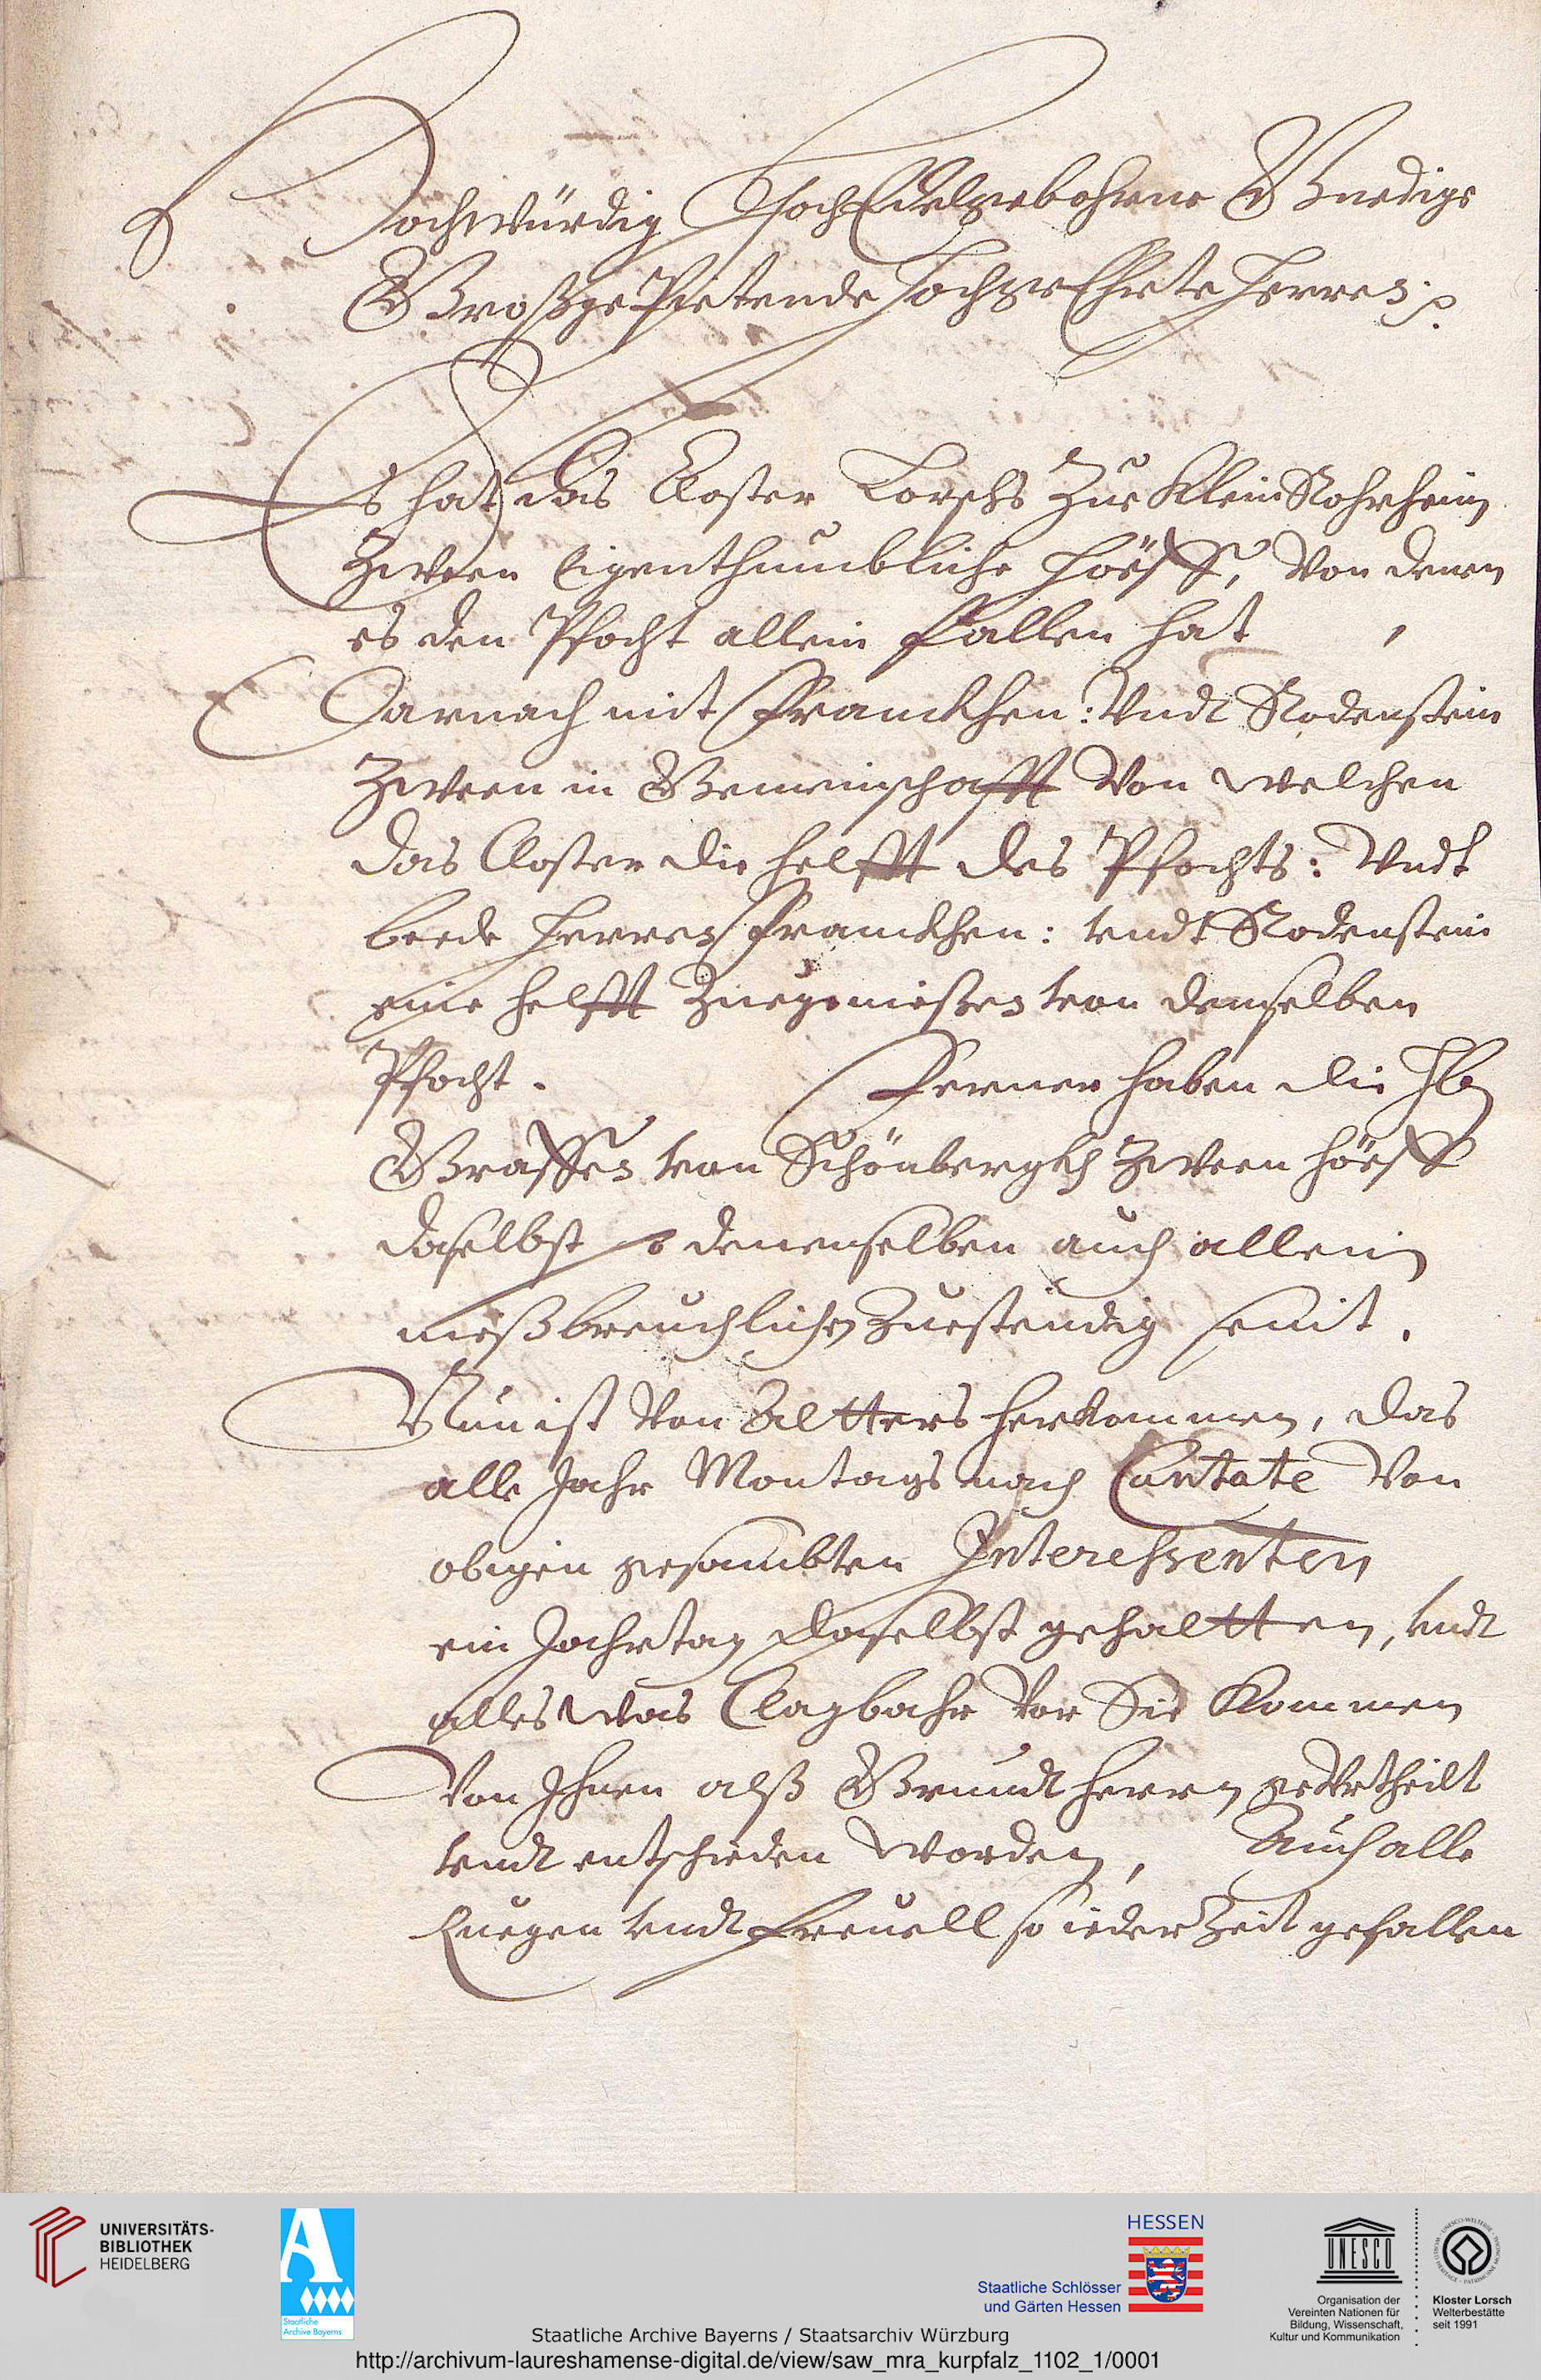 Hochwürdig HochEdelgebohrne Gnedige
Großgepietende HochgeEhrte Herren p.
Es hat das Closter Lorschs Zue KleinRohrheim
Zween Eigenthumbliche Höeff, Von denen
es den Pfacht allein fallen hat ,
Darnach mit Franckhen: Vndt Rodenstein
Zween in Gemeinschafft Von welchen
das Closter die helfft des Pfachts: Vndt
beede Herren Franckhen: vndt Rodenstein
eine helfft Zuegenießen von demselben
Pfacht. Ferner haben die
Graffen von Schönbergkh Zween höeff
daselbst so denenselben auch allein
nießbreuchlichen Zueständig seint.
Nun ist Von Altters herkommen, das
alle Jahr Montags nach Cantate Von
obigen gesambten Interessenten
ein Jahrtag daselbst gehaltten, vndt
alles was Clagbahr Vor Sie Kommen
Von Ihnen alß Grundtherrn geVrtheilt
vndt entschieden worden, Auch alle
Ruegen vndt Freuell so iederZeit gefallen
UNIVERSITÄTS-
BIBLIOTHEK
HEIDELBERG
Staatliche
Archive Bayerns
HESSEN
Staatliche Schlösser
und Gärten Hessen
UNESCO
Organisation der
Vereinten Nationen für
Bildung, Wissenschaft,
Kultur und Kommunikation
Kloster Lorsch
Welterbestätte
seit 1991
Staatliche Archive Bayerns / Staatsarchiv Würzburg
http://archivum-laureshamense-digital.de/view/saw_mra_kurpfalz_1102_1/0001